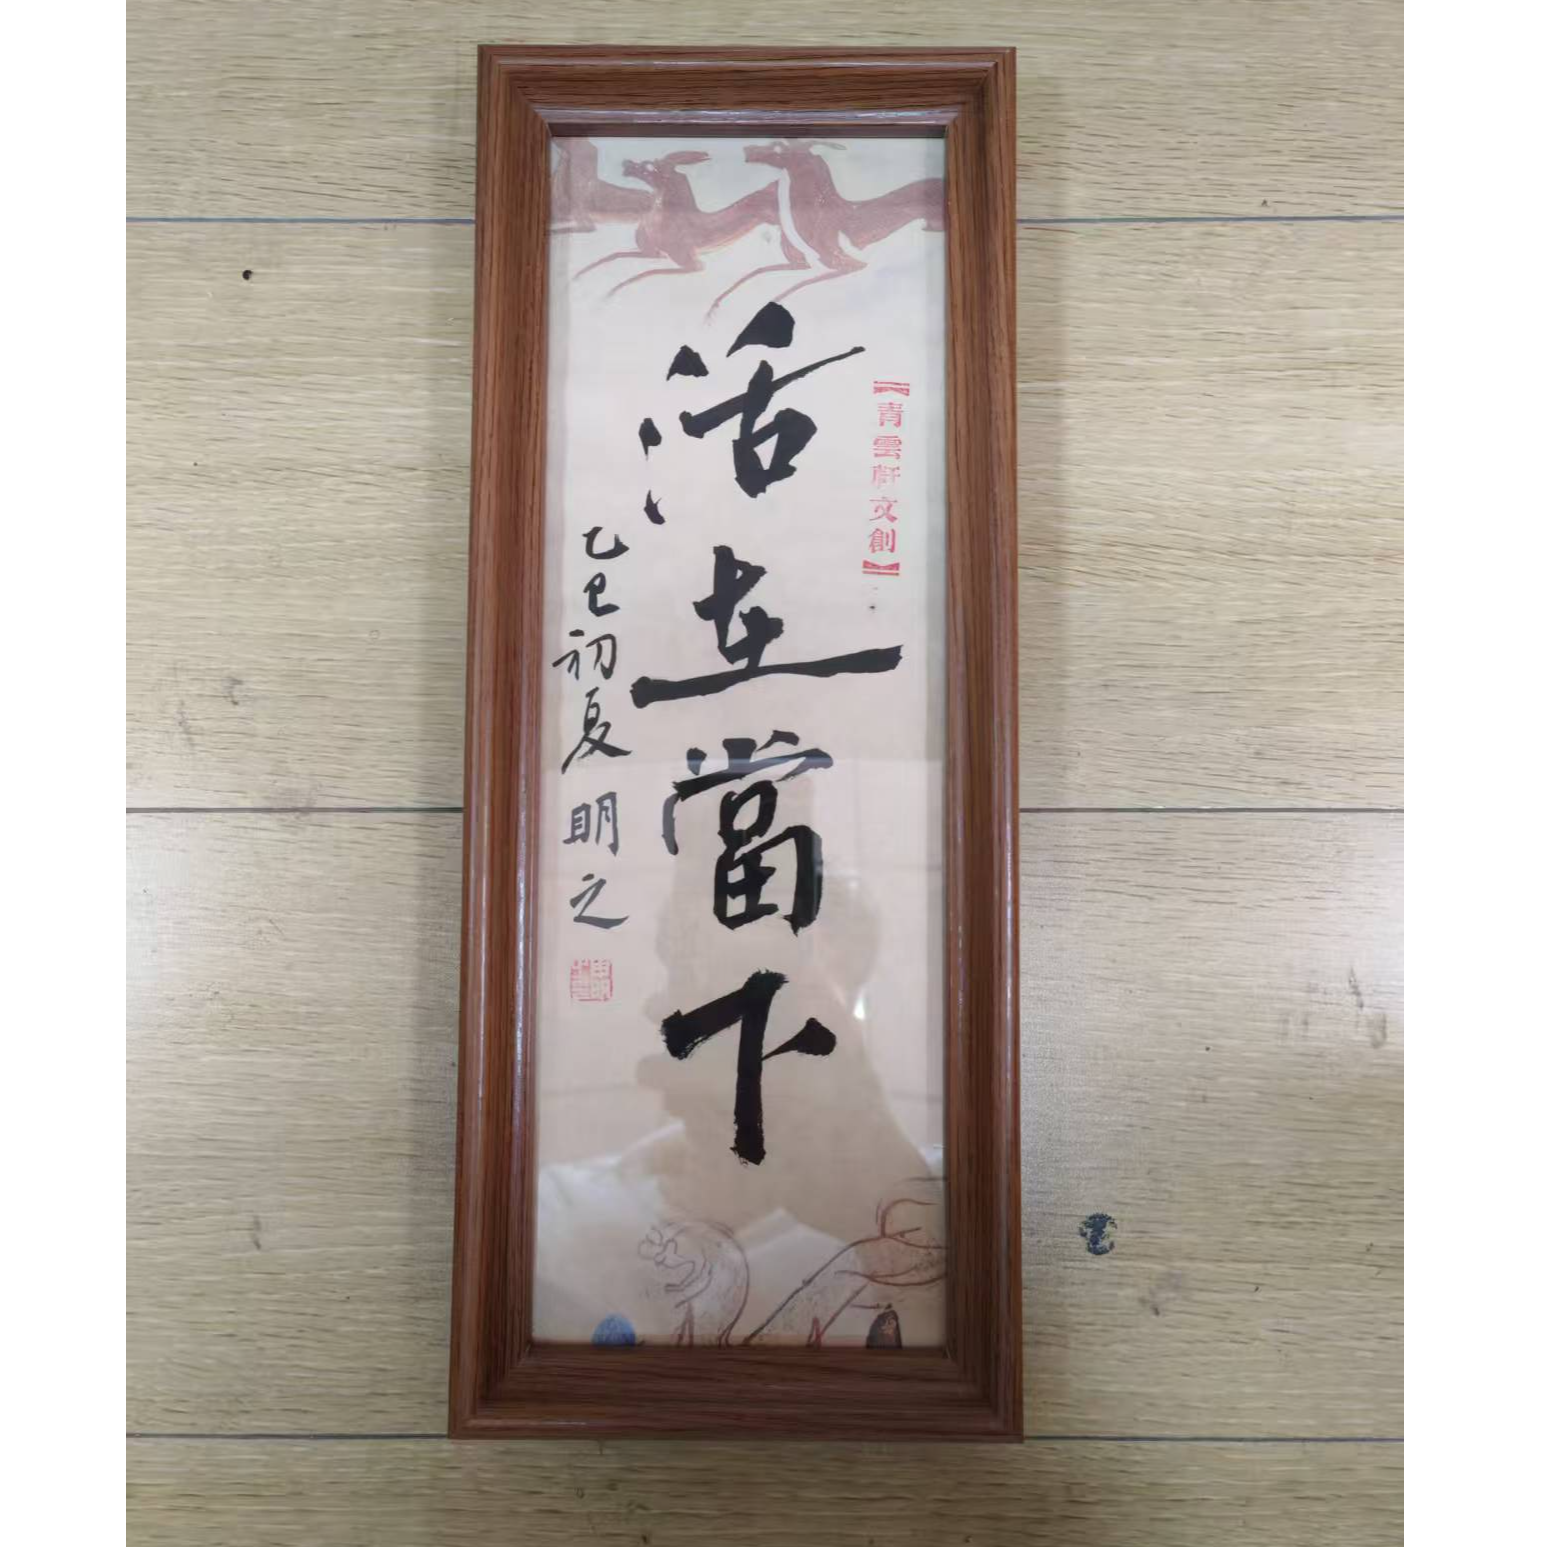 【青雲軒文創】
活在當下
乙巳初夏 明之